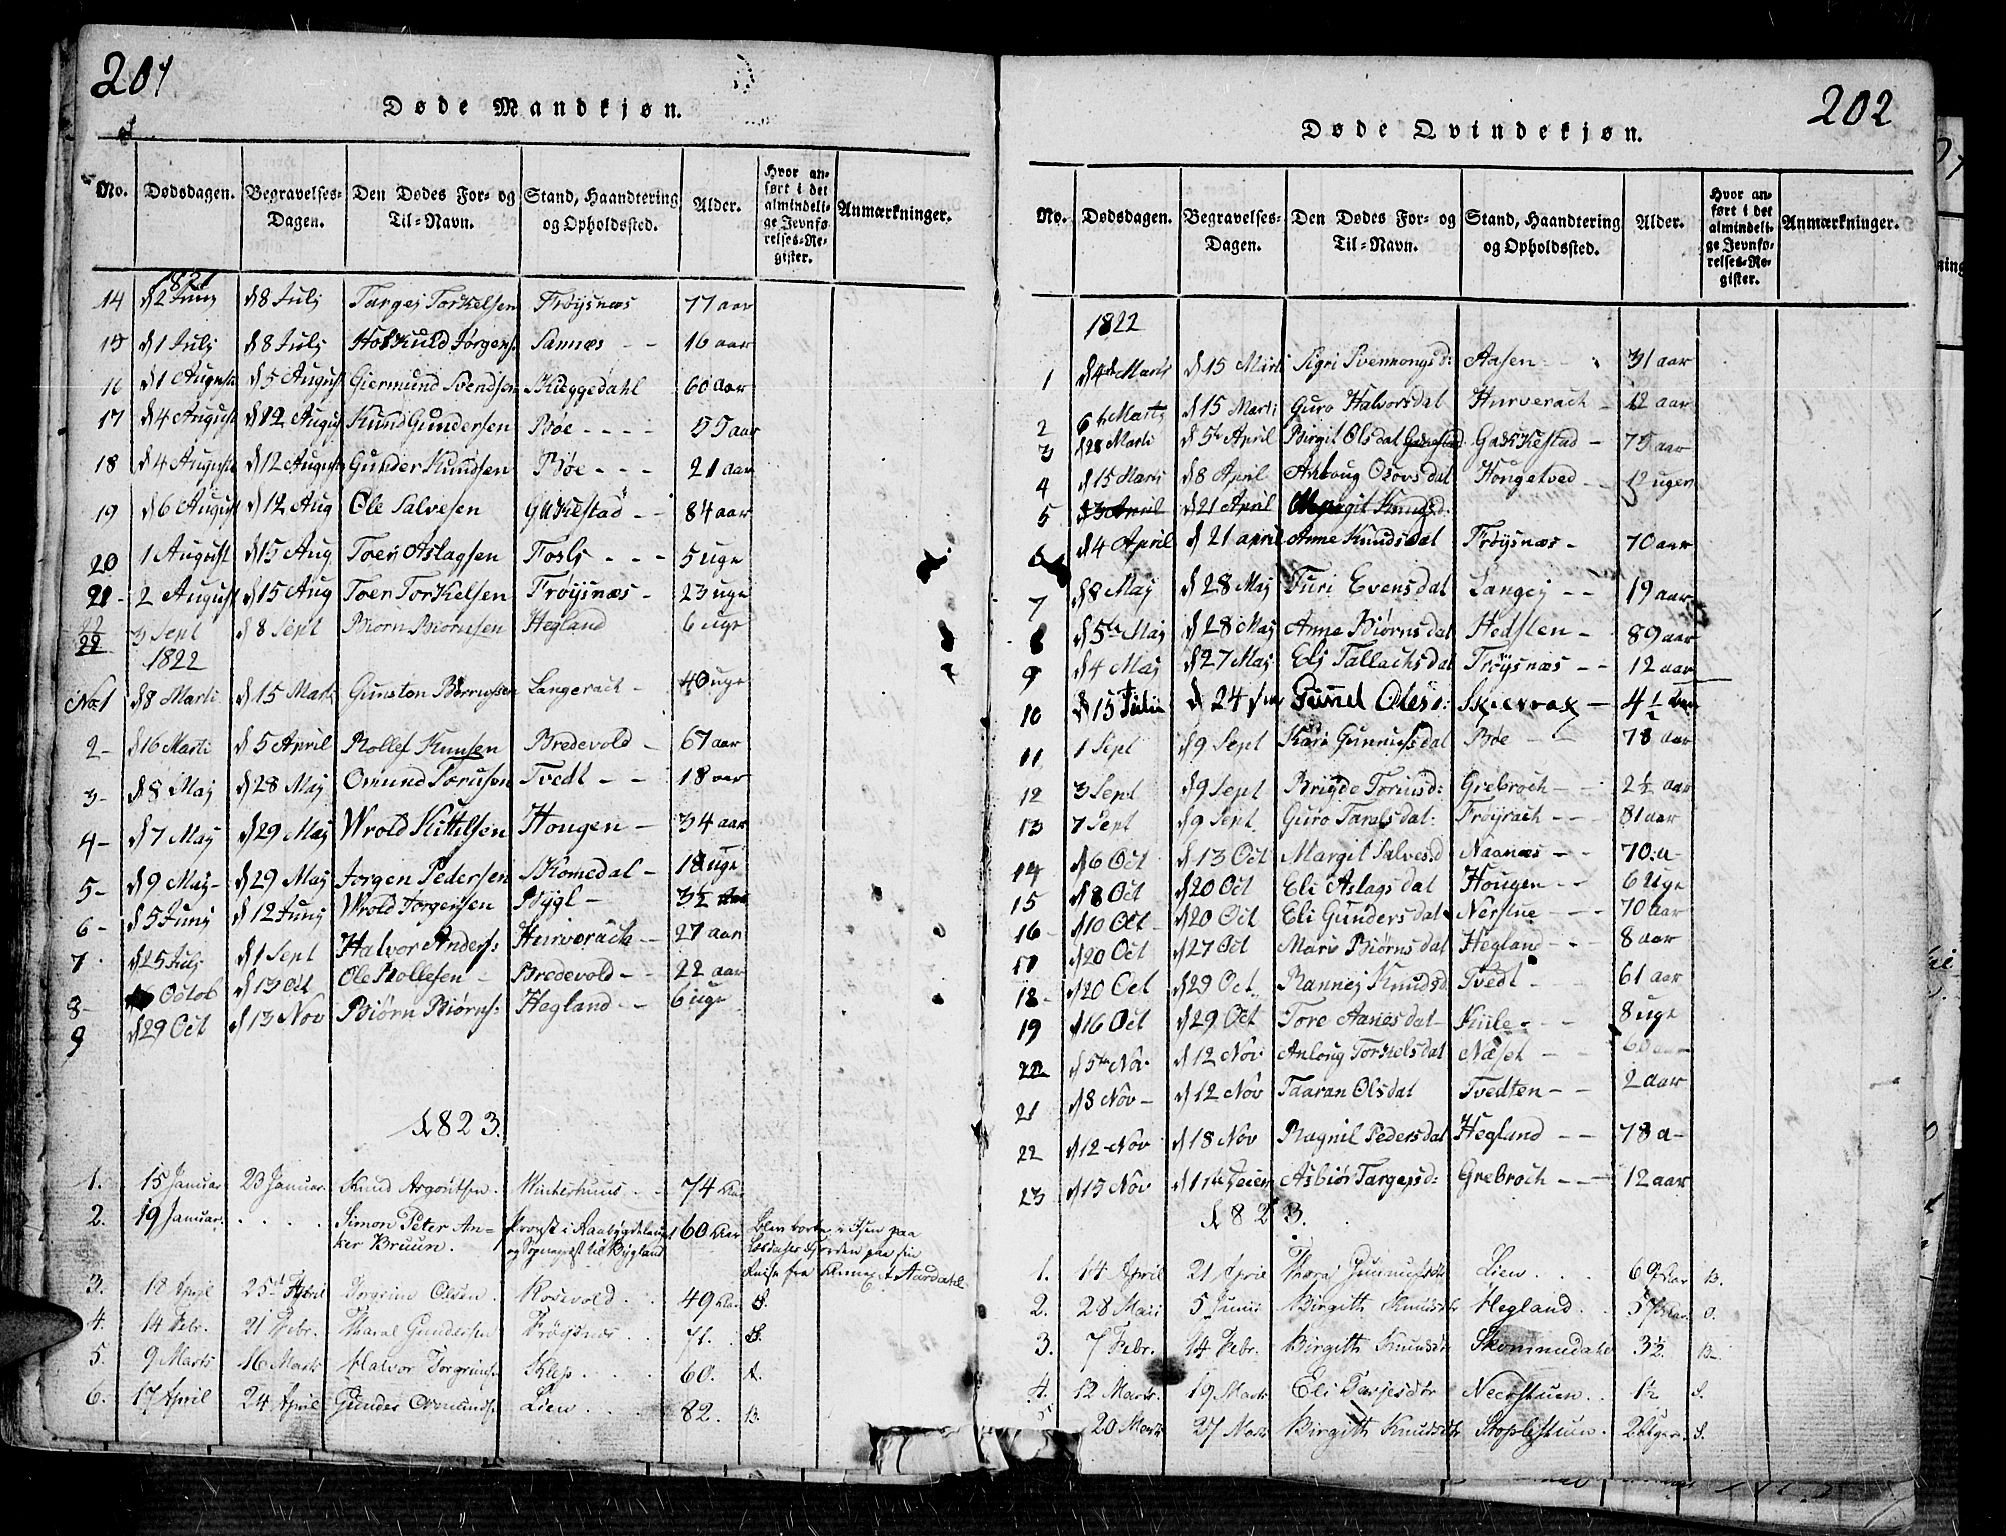 201
Døde Mandkjøn.
No. Dødsdagen. Begravelses-Dagen. Den Dødes For- og Til-Navn. Stand, Haandtering og Opholdssted. Alder. Hvor anført i det almindelige Jevnførelses-Register. Anmærkninger.
1821
14 d 2 Junj d 8 Julj Targej Torkelsen Frøysnæs 77 aar
15 d 1 Julj d 8 Julj Hoskuld Jørgens: Sannæs - - 16 aar
16 d 1 August d 5 August Giermund Svendsen Skieggedahl 60 aar
17 d 4 August d 12 August Knud Gundersen Bøe - - - - 55 aar
18 d 4 August d 12 August Gunder Knudsen Bøe - - - 21 aar
19 d 6 August d 12 Aug Ole Salvesen Gakestad - - 84 aar
20 1 August d 15 Aug Toer Aslagsen Fosls - - - 5 uge
21 - 2 August d 15 Aug Toer Torkelsen Frøysnæs - 23 uge
22 3 Sept d 8 Sept Biørn Biørnsen Hegland 6 uge
1822
No: 1 d 8 Marti d 15 Marti Gunston Børnusen Langerach - 40 uge
2 - d 16 Marti d 5 April Rollef Knusen Bredevold - 67 aar
3 - d 8 Maj d 28 Maj Omund Torusen Tvedt - - 18 aar
4 - d 7 Maj d 29 Maj Wrold Kittilsen Hougen - 34 aar
5 - d 9 Maj - d 29 Maj Jørgen Pedersen Skomedal - 18 uge
6 - d 5 Junj d 12 Junj Wrold Jørgensen Bygl - 3½ aar
7 d 25 Julj d 1 Sept Halvor Anders: Hurverach - - 27 aar
8 - 6 Octob d 13 Oct Ole Rollefsen - Bredevold - - 22 aar
9 d 29 Oct d 13 Nov Biørn Biørns: Hegland - - 6 uge
1823.
1. 15 Januar 23 Januar. Knud Asgoutsen. Winterhuus . . 74 Aar
2. 19 Januar. . . . . Simon Peter Anker Bruun. Provst i Raabygdelauget og Sognepræst til Bygland 60 Aar Blev borte i Isen paa Reise fra Annexet Aardahl
3. 18 April 25de April Torgrim Olsen . Rosevold . . 49 Aar S.
4. 14 Febr. 21 Febr. Tharal Gundersen Frøysnæs . . 71. S.
5. 9 Marts 16 Marts Halvor Torgrims: Klep . . . . 60. A.
6. 17 April 24 April Gunder Omunds: Lien . . . . 82. B.
202
Døde Qvindekjøn.
No. Dødsdagen. Begravelses-Dagen. Den Dødes For- og Til-Navn. Stand, Haandtering og Opholdssted. Alder. Hvor anført i det almindelige Jevnførelses-Register. Anmærkninger.
1822
1 d 4de Marti d 15 Marti Sigri Svennongsd: Aasen - - 31 aar
2 6te Marti d 15 Marti Guro Halvorsdal Hurverach - 12 aar
3 d 28 Marti d 5te April Birgit Olsdal Gakkestad - 75 aar
4 d 15 Marti d 8 April Aslaug Olovsdal Hougetved - - 12 uger
5 d 3 April d 21 April Margit Knudsd:
6 d 4 April d 21 april Anne Knudsdal Frøysnæs - 70 aar
7 d 8 Maj d 28 Maj Turi Evensdal Langej - - 19 aar
8 d 5te Maj d 28 Maj Anne Biørnsdal Hedslen - 89 aar
9 d 4 Maj d 27 Maj Elj Tallachsdal Frøysnæs - - 12 aar
10 d 15 Julii d 24 Gunel Olesd: Skievrak - 4½ aar
11 1 Sept d 9 Sept Kari Gunnufsdal Bøe - - 78 aar
12 3 Sept d 9 Sept Brigde Toriusd: Grebroch - - 2½ aar
13 7 Sept d 9 Sept. Guro Taralsdal: Frøyrach - - 81 aar
14 d 6 Oct d 13 Oct Margit Salvesd Naanæs - - 70: a -
15 d 8 Oct d 20 Oct Eli Aslagsdal Hougen - - 6 Uge
16 - d 10 Oct - d 20 Oct Eli Gundersdal Nerstue - - 70 aar
17 d 20 Oct d 27 Oct Mari Biørnsdal Hegland - - 8 aar
18 - d 20 Oct d 29 Oct. Rannej Knudsd Tvedt - 61 aar
19 d 16 Oct d 29 Oct Tore Aanesdal - Kiile - - - 8 uge
20 d 5te Nov. d 12 Nov Anloug Torkelsdal Næset - - 60 aar
21 d 8 Nov - d 12 Nov Taaran Olsdal Tvedten - - 2 aar
22 d 12 - Nov d 18 Nov Ragnil Pedersdal Hegland - - 78 a -
23 d 15 Nov d 11te Asbiør Targejsd: Grebroch - - - 12 aar
1823.
1. 14 April 21 April Tharaj Gunnufsdtr Lien . . . 69 Aar B.
2. 28 Maii 5 Junii Birgith Knudsdtr Hegland . . 57 Aar O.
3. 7 Febr. 14 Febr. Birgith Knudsdtr Skommedahl 3½. B.
4. 12 Marts. 19 Marts Eli Tarjesdtr Neerstuen . . 1½ S.
5 20 Marts 27 Marts Birgith Knudsdtr Stoplestuen . 2 Uger. S.